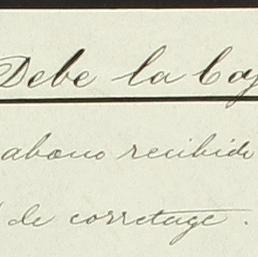 Debe la Caj
abono recibido
de corretage.